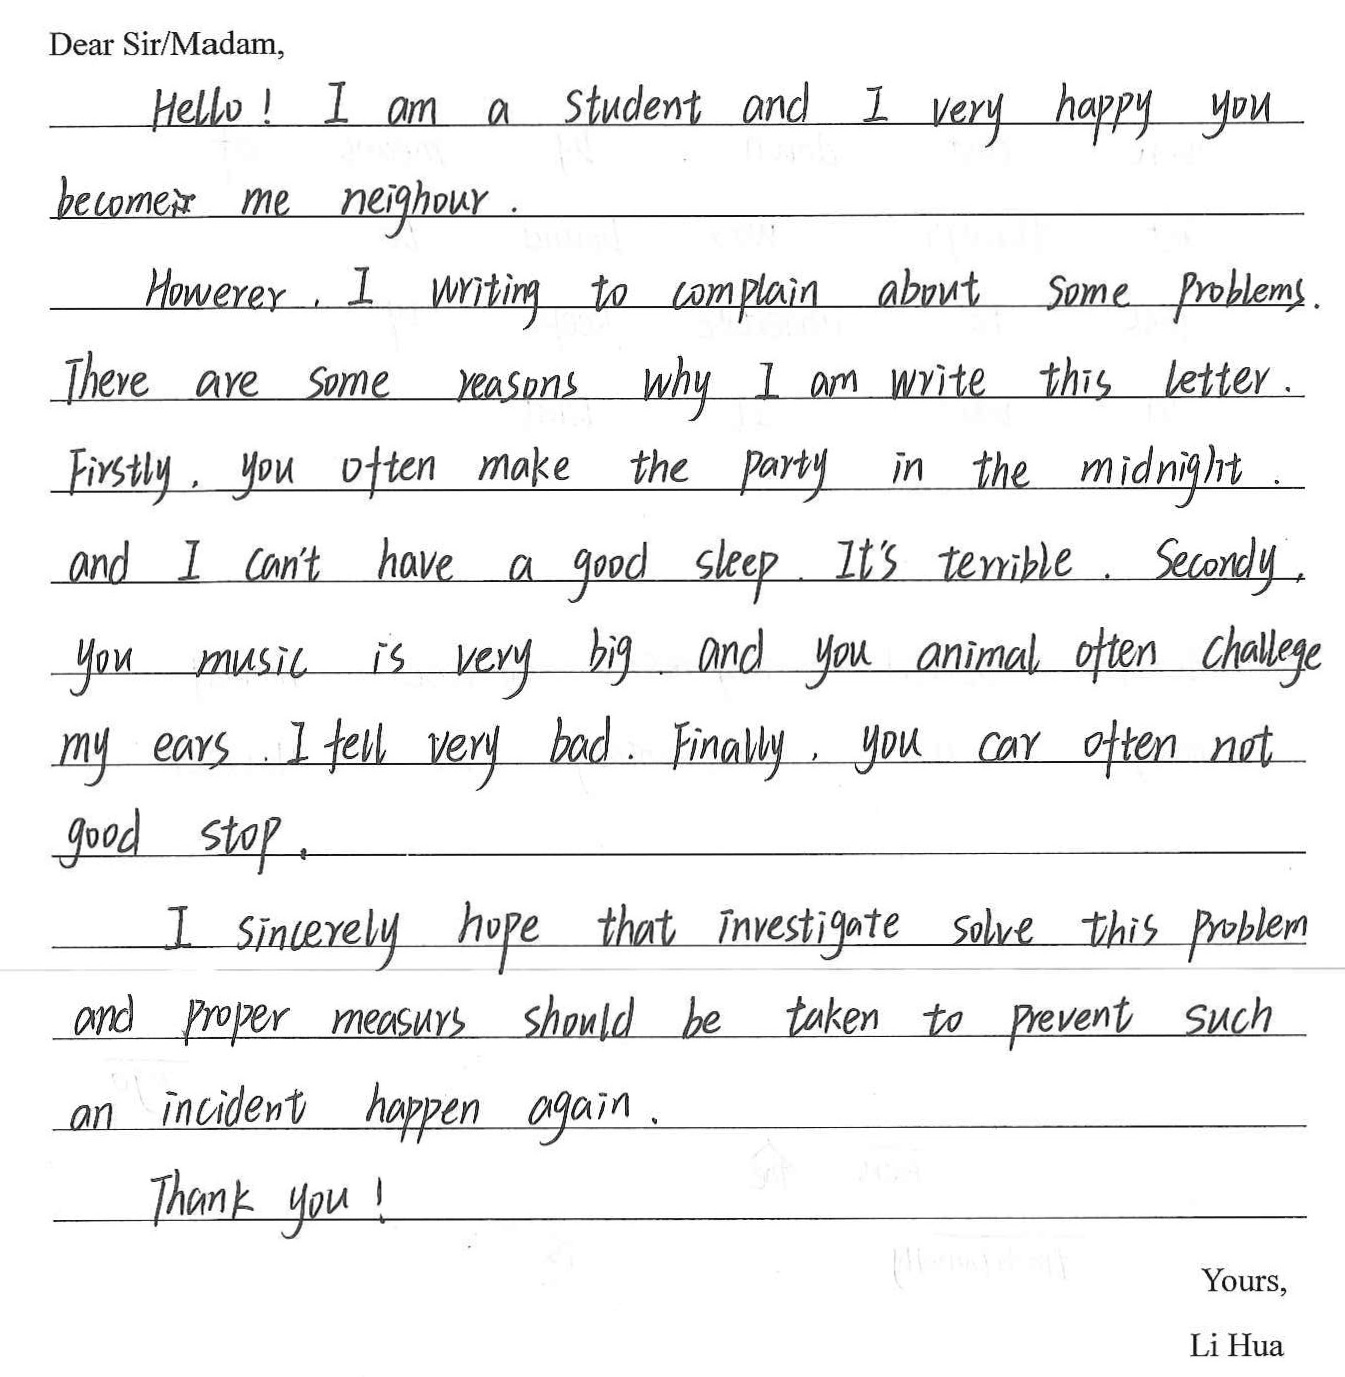 Dear Sir/Madam,
Hello! I am a student and I very happy you
become me neighour.
Howerer, I writing to complain about some problems.
There are some reasons why I am write this letter.
Firstly, you often make the party in the midnight.
and I can't have a good sleep. It's terrible. Secondy,
you music is very big and you animal often challege
my ears. I fell very bad. Finally, you car often not
good stop.
I sincerely hope that investigate solve this problem
and proper measurs should be taken to prevent such
an incident happen again.
Thank you!
Yours,
Li Hua